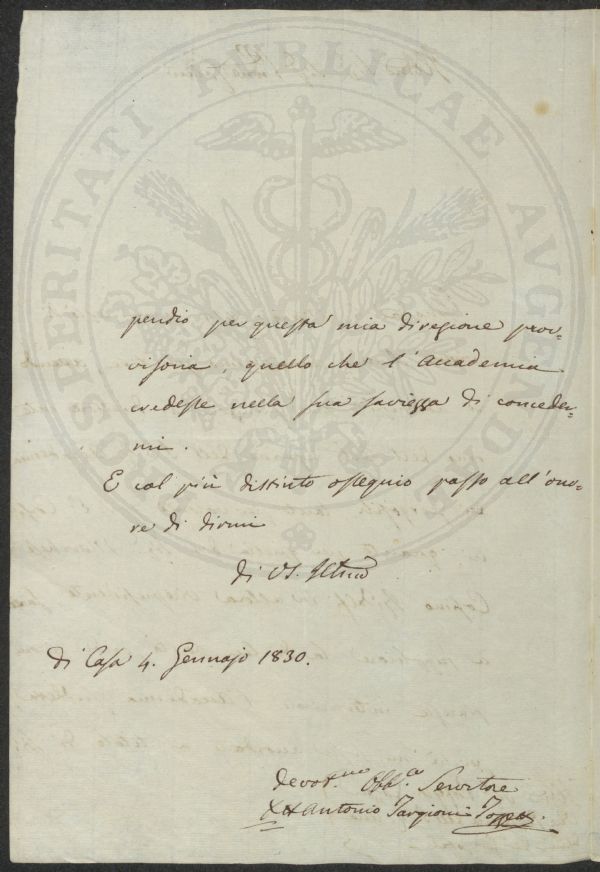 PROSPERITATI PUBLICAE AUGENDAE
pendio per questa mia diregione prov-
visoria, quello che l'Accademia
credesse nella sua saviezza di conceder-
mi.
E col più distinto ossequio passo all'ono-
re di dirmi
di VS.
di Casa 4. Gennajo 1830.
Devot.mo Obb.o Servitore
Antonio Targioni Tozzetti.